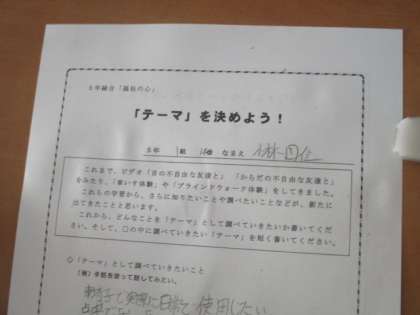 5年総合「福祉の心」
「テーマ」を決めよう！
5年 組 番 なまえ
これまで、ビデオ「目の不自由な友達と」「からだの不自由な友達と」
をみたり、「車いす体験」や「ブラインドウォーク体験」をしてきました。
これらの学習から、さらに知りたいことや調べたいことなどが、新たに
出てきたことと思います。
これから、どんなことを「テーマ」として調べていきたいか書いてくだ
さい。そして、○の中に調べていきたい「テーマ」を短く書いてください。
◇「テーマ」として調べていきたいこと
（例）手話を使って話してみたい。
使用したい